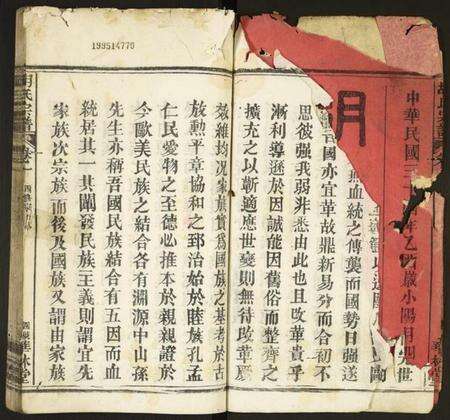 199514770
中華民國三十
年乙酉歲小陽月
世
胡
血統之傳襲而國勢日強遂
吾國亦宜革故鼎新易分而合初不
思彼強我弱非悉由此也且改革貴乎
漸利導遜於因誠能因舊俗而整齊之
擴充之以蘄適應世變則無待改革變
效維均况家族實為國族之基考於古
放勳平章協和之郅治始於睦族孔孟
仁民愛物之至德必推本於親親證於
今歐美民族之結合各有淵源中山孫
先生亦稱吾國民族結合有五因而血
統居其一其闡發民族主義則謂宜先
家族次宗族而後及國族又謂由家族
胡氏宗譜
卷一